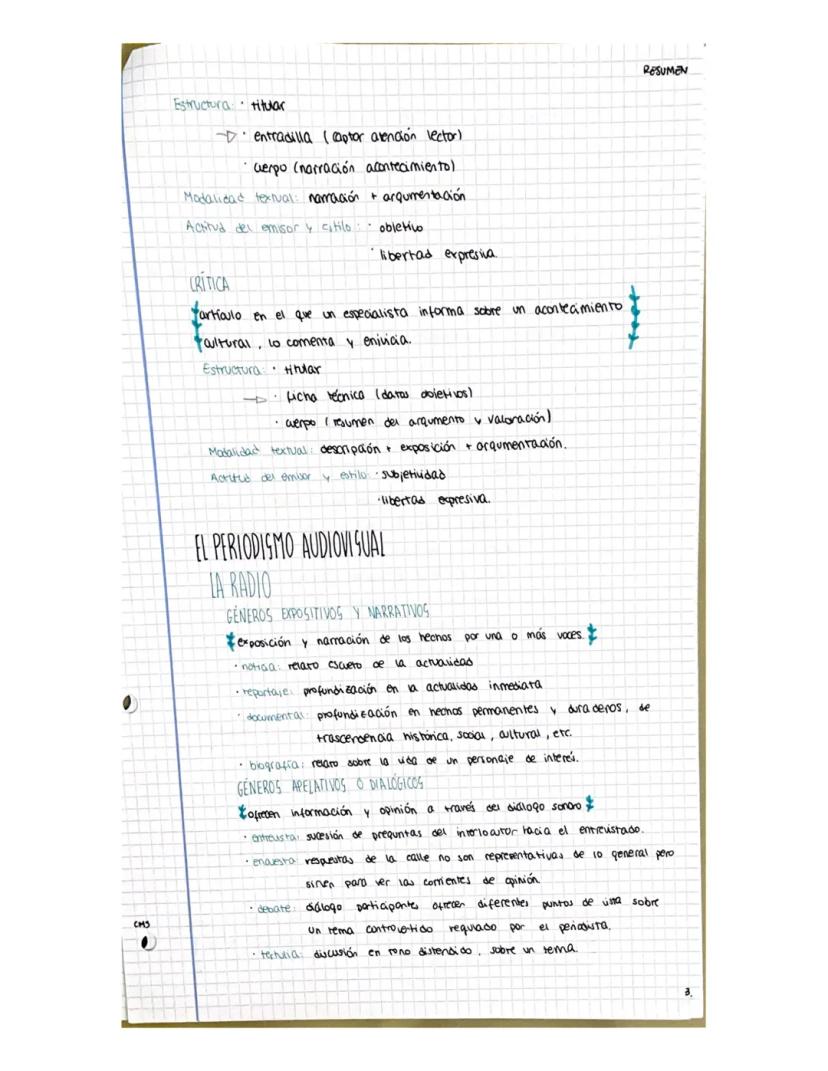 RESUMEN
Estructura: · titular
· entradilla (captor atención lector)
· cuerpo (narración acontecimiento)
Modalidad textual: narración + argumentación
Actitud del emisor y estilo: · objetivo
· libertad expresiva.
CRÍTICA
artículo en el que un especialista informa sobre un acontecimiento
cultural, lo comenta y enjuicia.
Estructura: · titular
· ficha técnica (datos objetivos)
· cuerpo (resumen del argumento y valoración)
Modalidad textual: descripción + exposición + argumentación.
Actitud del emisor y estilo · subjetividad
· libertad expresiva.
EL PERIODISMO AUDIOVISUAL
LA RADIO
GÉNEROS EXPOSITIVOS Y NARRATIVOS
exposición y narración de los hechos por una o más voces.
· noticia: relato escueto de la actualidad
· reportaje: profundización en la actualidad inmediata
· documental: profundización en hechos permanentes y duraderos, de
trascendencia histórica, social, cultural, etc.
· biografía: relato sobre la vida de un personaje de interés.
GÉNEROS APELATIVOS O DIALÓGICOS
ofrecen información y opinión a través del diálogo sonoro
· entrevista: sucesión de preguntas del interlocutor hacia el entrevistado.
· encuesta: respuestas de la calle no son representativas de lo general pero
sirven para ver las corrientes de opinión
· debate: diálogo participantes ofrecen diferentes puntos de vista sobre
un tema controvertido regulado por el periodista.
· tertulia: discusión en tono distendido, sobre un tema.
CMS
3.